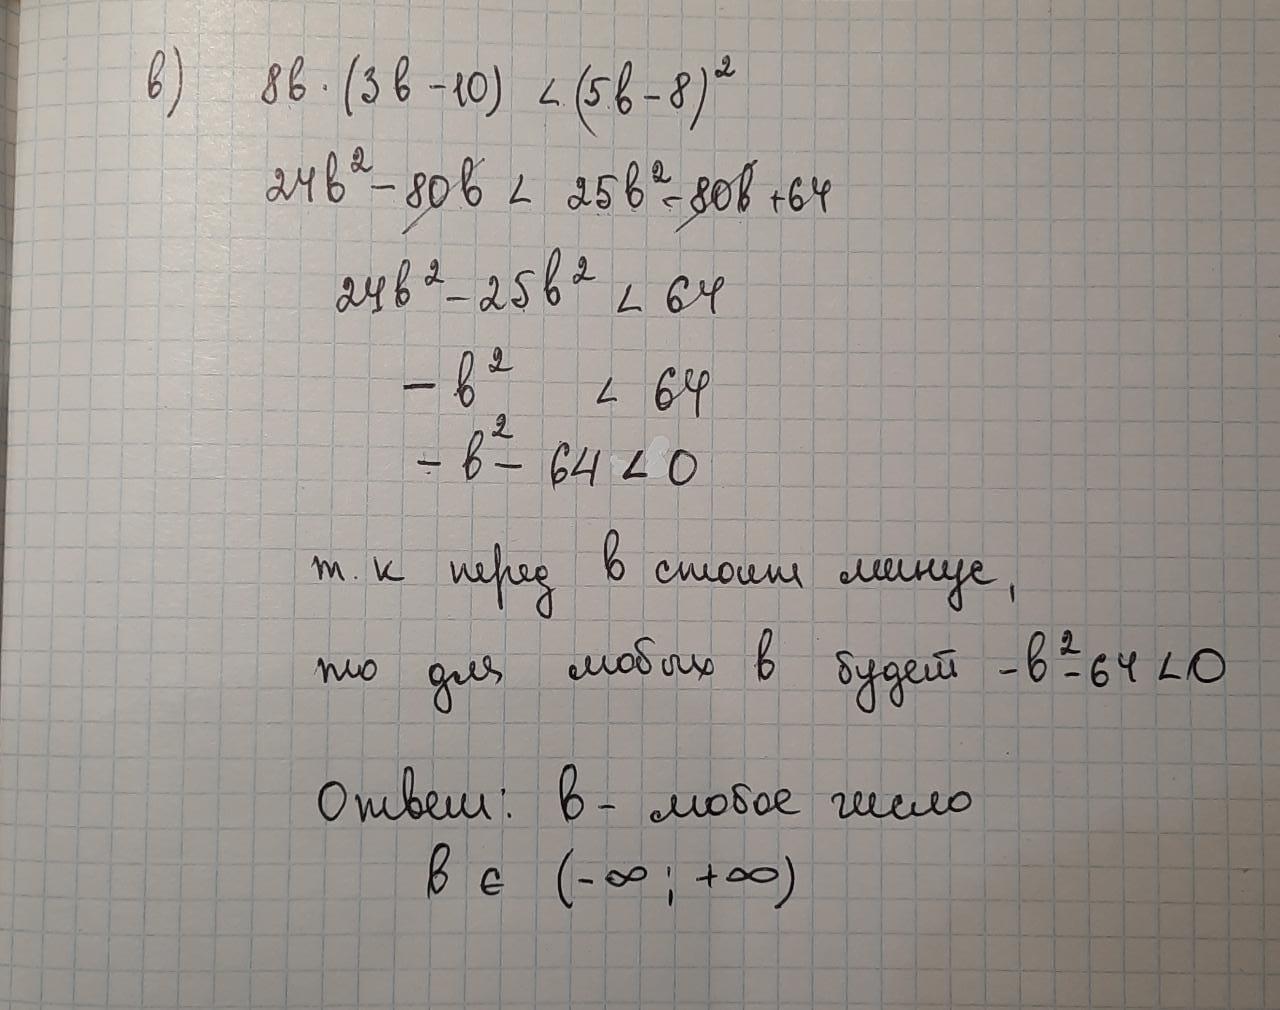 в) 8в · (3в - 10) < (5в - 8)²
24в² - 80в < 25в² - 80в + 64
24в² - 25в² < 64
- в² < 64
- в² - 64 < 0
т.к перед в стоит минус,
то для любых в будет -в² - 64 < 0
Ответ: в - любое число
в ∈ (-∞; +∞)